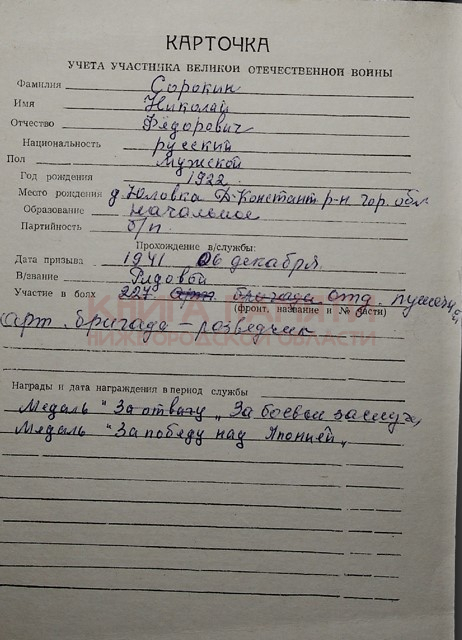 КАРТОЧКА
УЧЕТА УЧАСТНИКА ВЕЛИКОЙ ОТЕЧЕСТВЕННОЙ ВОЙНЫ
Фамилия Сорокин
Имя Николай
Отчество Фёдорович
Национальность русский
Пол мужской
Год рождения 1922
Место рождения д. Юловка Д-Констант. р-н гор. обл.
Образование начальное
Партийность б/п.
Прохождение в/службы:
Дата призыва 1941 06 декабря
В/звание Рядовой
Участие в боях 227 бригада отд. пушечн
(фронт, название и № части)
арт. бригада – розведчик
КНИГА ПАМЯТИ
НИЖЕГОРОДСКОЙ ОБЛАСТИ
Награды и дата награждения в период службы
Медаль "За отвагу „ За боевые заслуги,
Медаль "За победу над Японией„